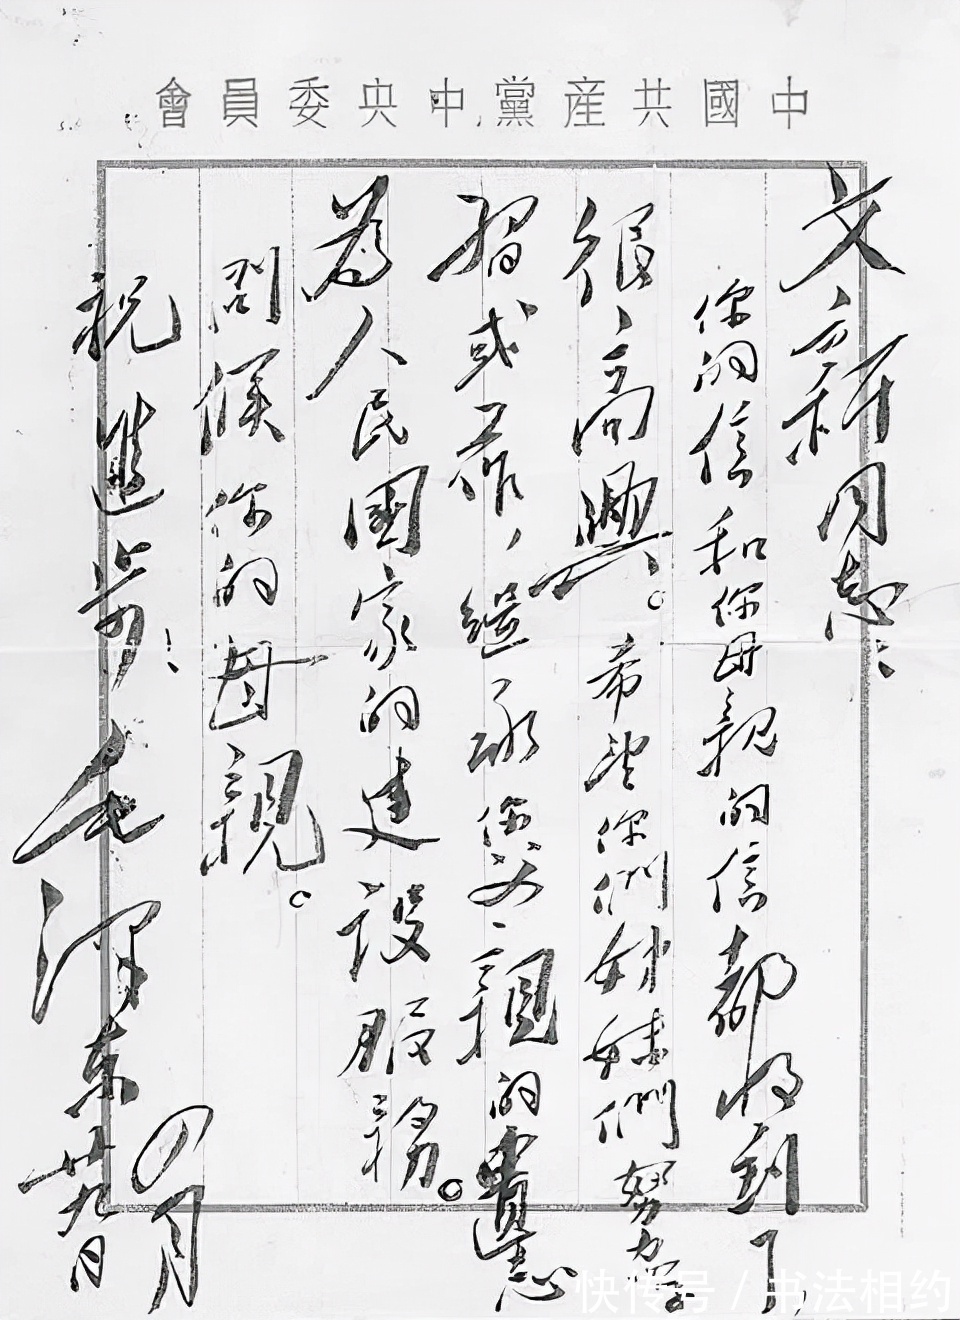 會員委央中黨産共國中
文新同志：
你的信和你母親的信都收到了，
很高興。希望你們姊妹們努力學
習或工作，繼承你父親的遺志，
為人民國家的建設服務。
問候你的母親。
祝進步！
毛澤東
四月廿九日
快传号/书法相约